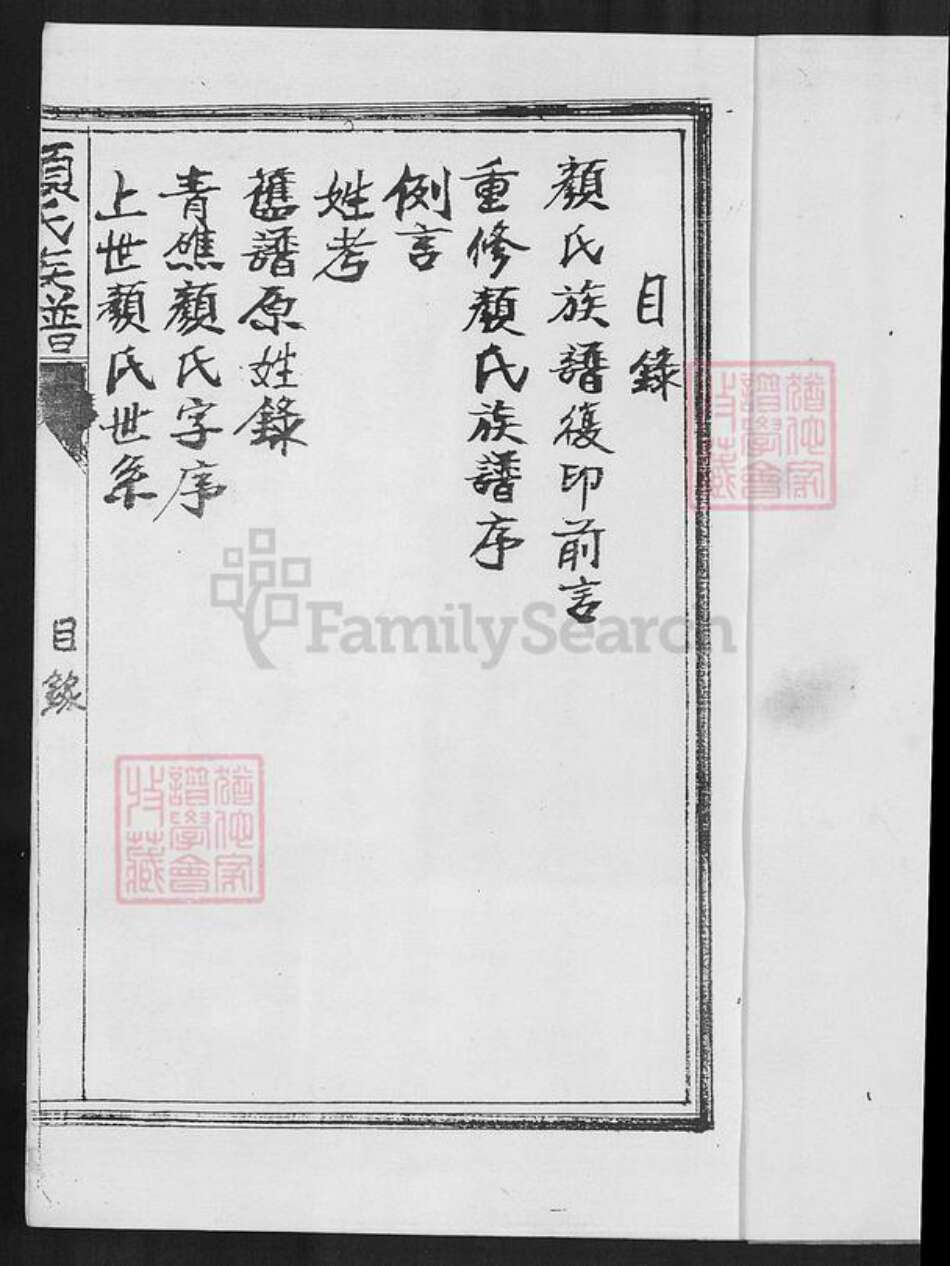 目錄
顏氏族譜復印前言
重修顏氏族譜序
例言
姓考
舊譜原姓錄
青礁顏氏字序
上世顏氏世系
顏氏族譜
目錄
FamilySearch
譜學會
收藏
譜學會
收藏